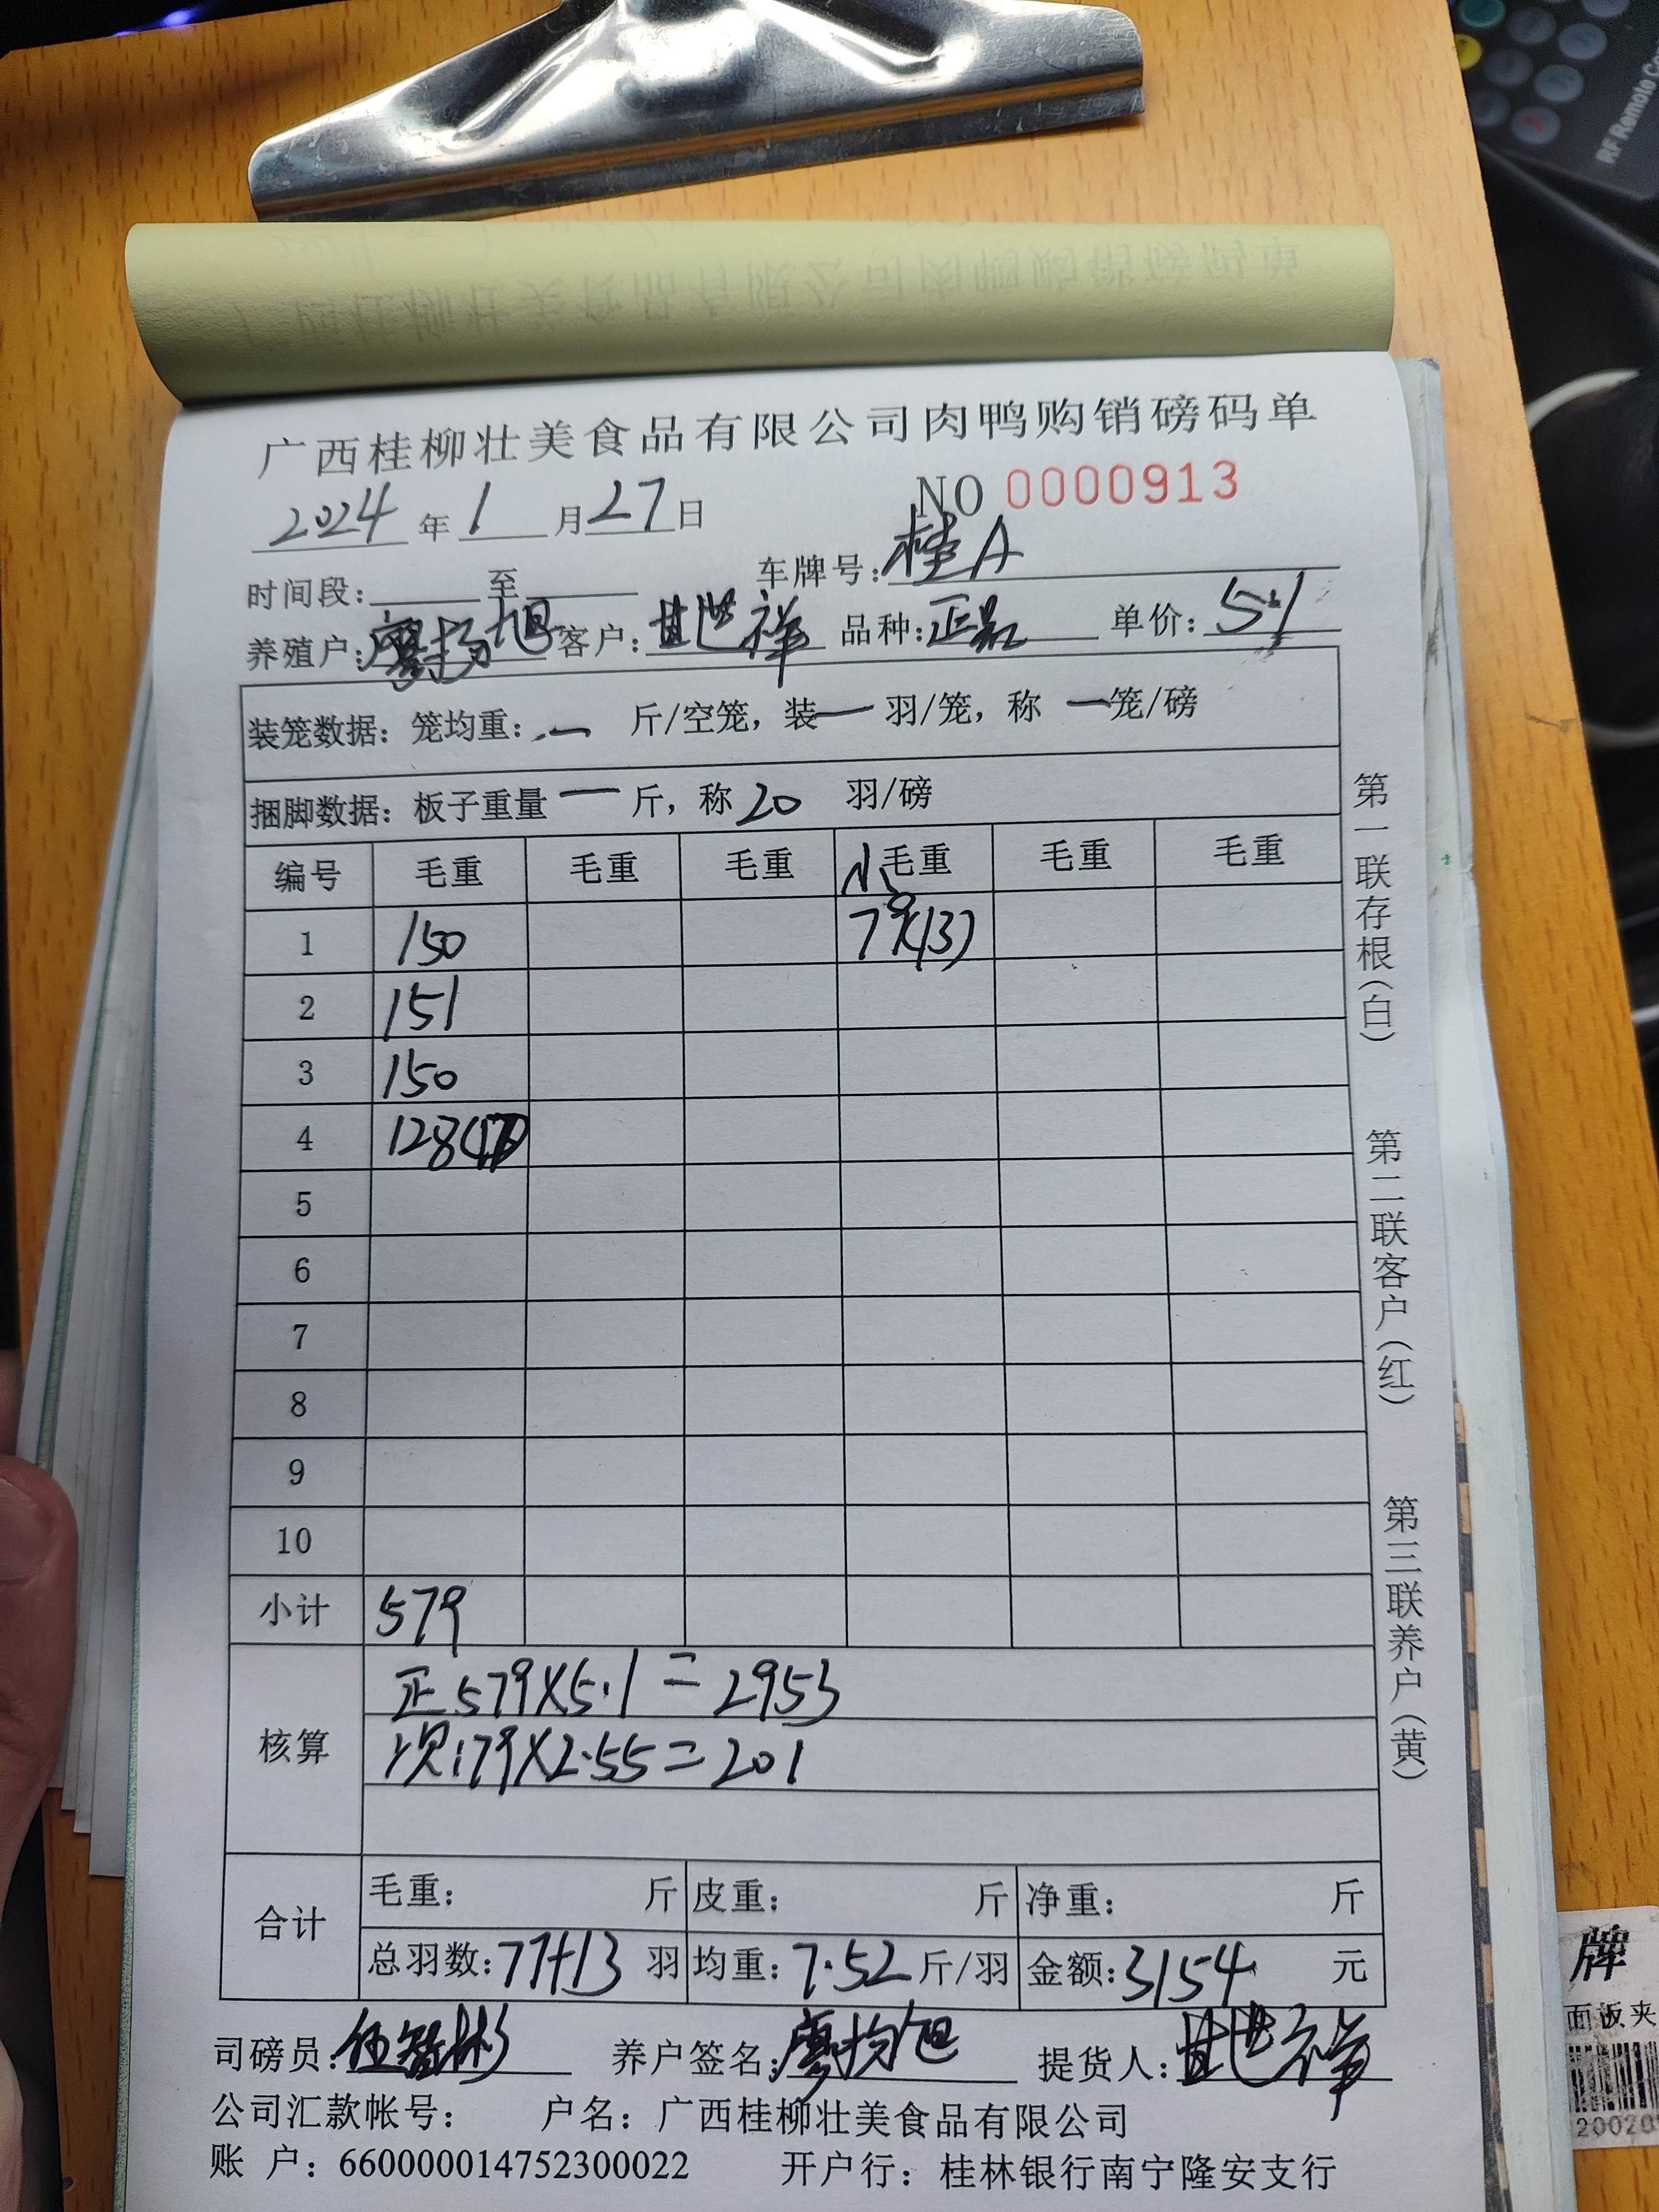 广西桂柳壮美食品有限公司肉鸭购销磅码单
2024年1月27日 NO 0000913
时间段: 至 车牌号:桂A
养殖户:廖扬旭 客户:甘世祥 品种:正品 单价:5.1
装笼数据:笼均重:一 斤/空笼,装一羽/笼,称 一笼/磅
捆脚数据:板子重量 一 斤,称20 羽/磅
编号 毛重 毛重 毛重 小毛重 毛重 毛重
1 150 79(13)
2 151
3 150
4 128(17)
5
6
7
8
9
10
小计 579
核算 正579X5.1=2953
次:79X2.55=201
合计 毛重: 斤 皮重: 斤 净重: 斤
总羽数:77+13 羽 均重:7.52斤/羽 金额:3154 元
司磅员:伍智彬 养户签名:廖扬旭 提货人:甘世祥
公司汇款帐号: 户名:广西桂柳壮美食品有限公司
账 户:660000014752300022 开户行:桂林银行南宁隆安支行
第一联存根(白)
第二联客户(红)
第三联养户(黄)
RF Remote
牌
面板夹